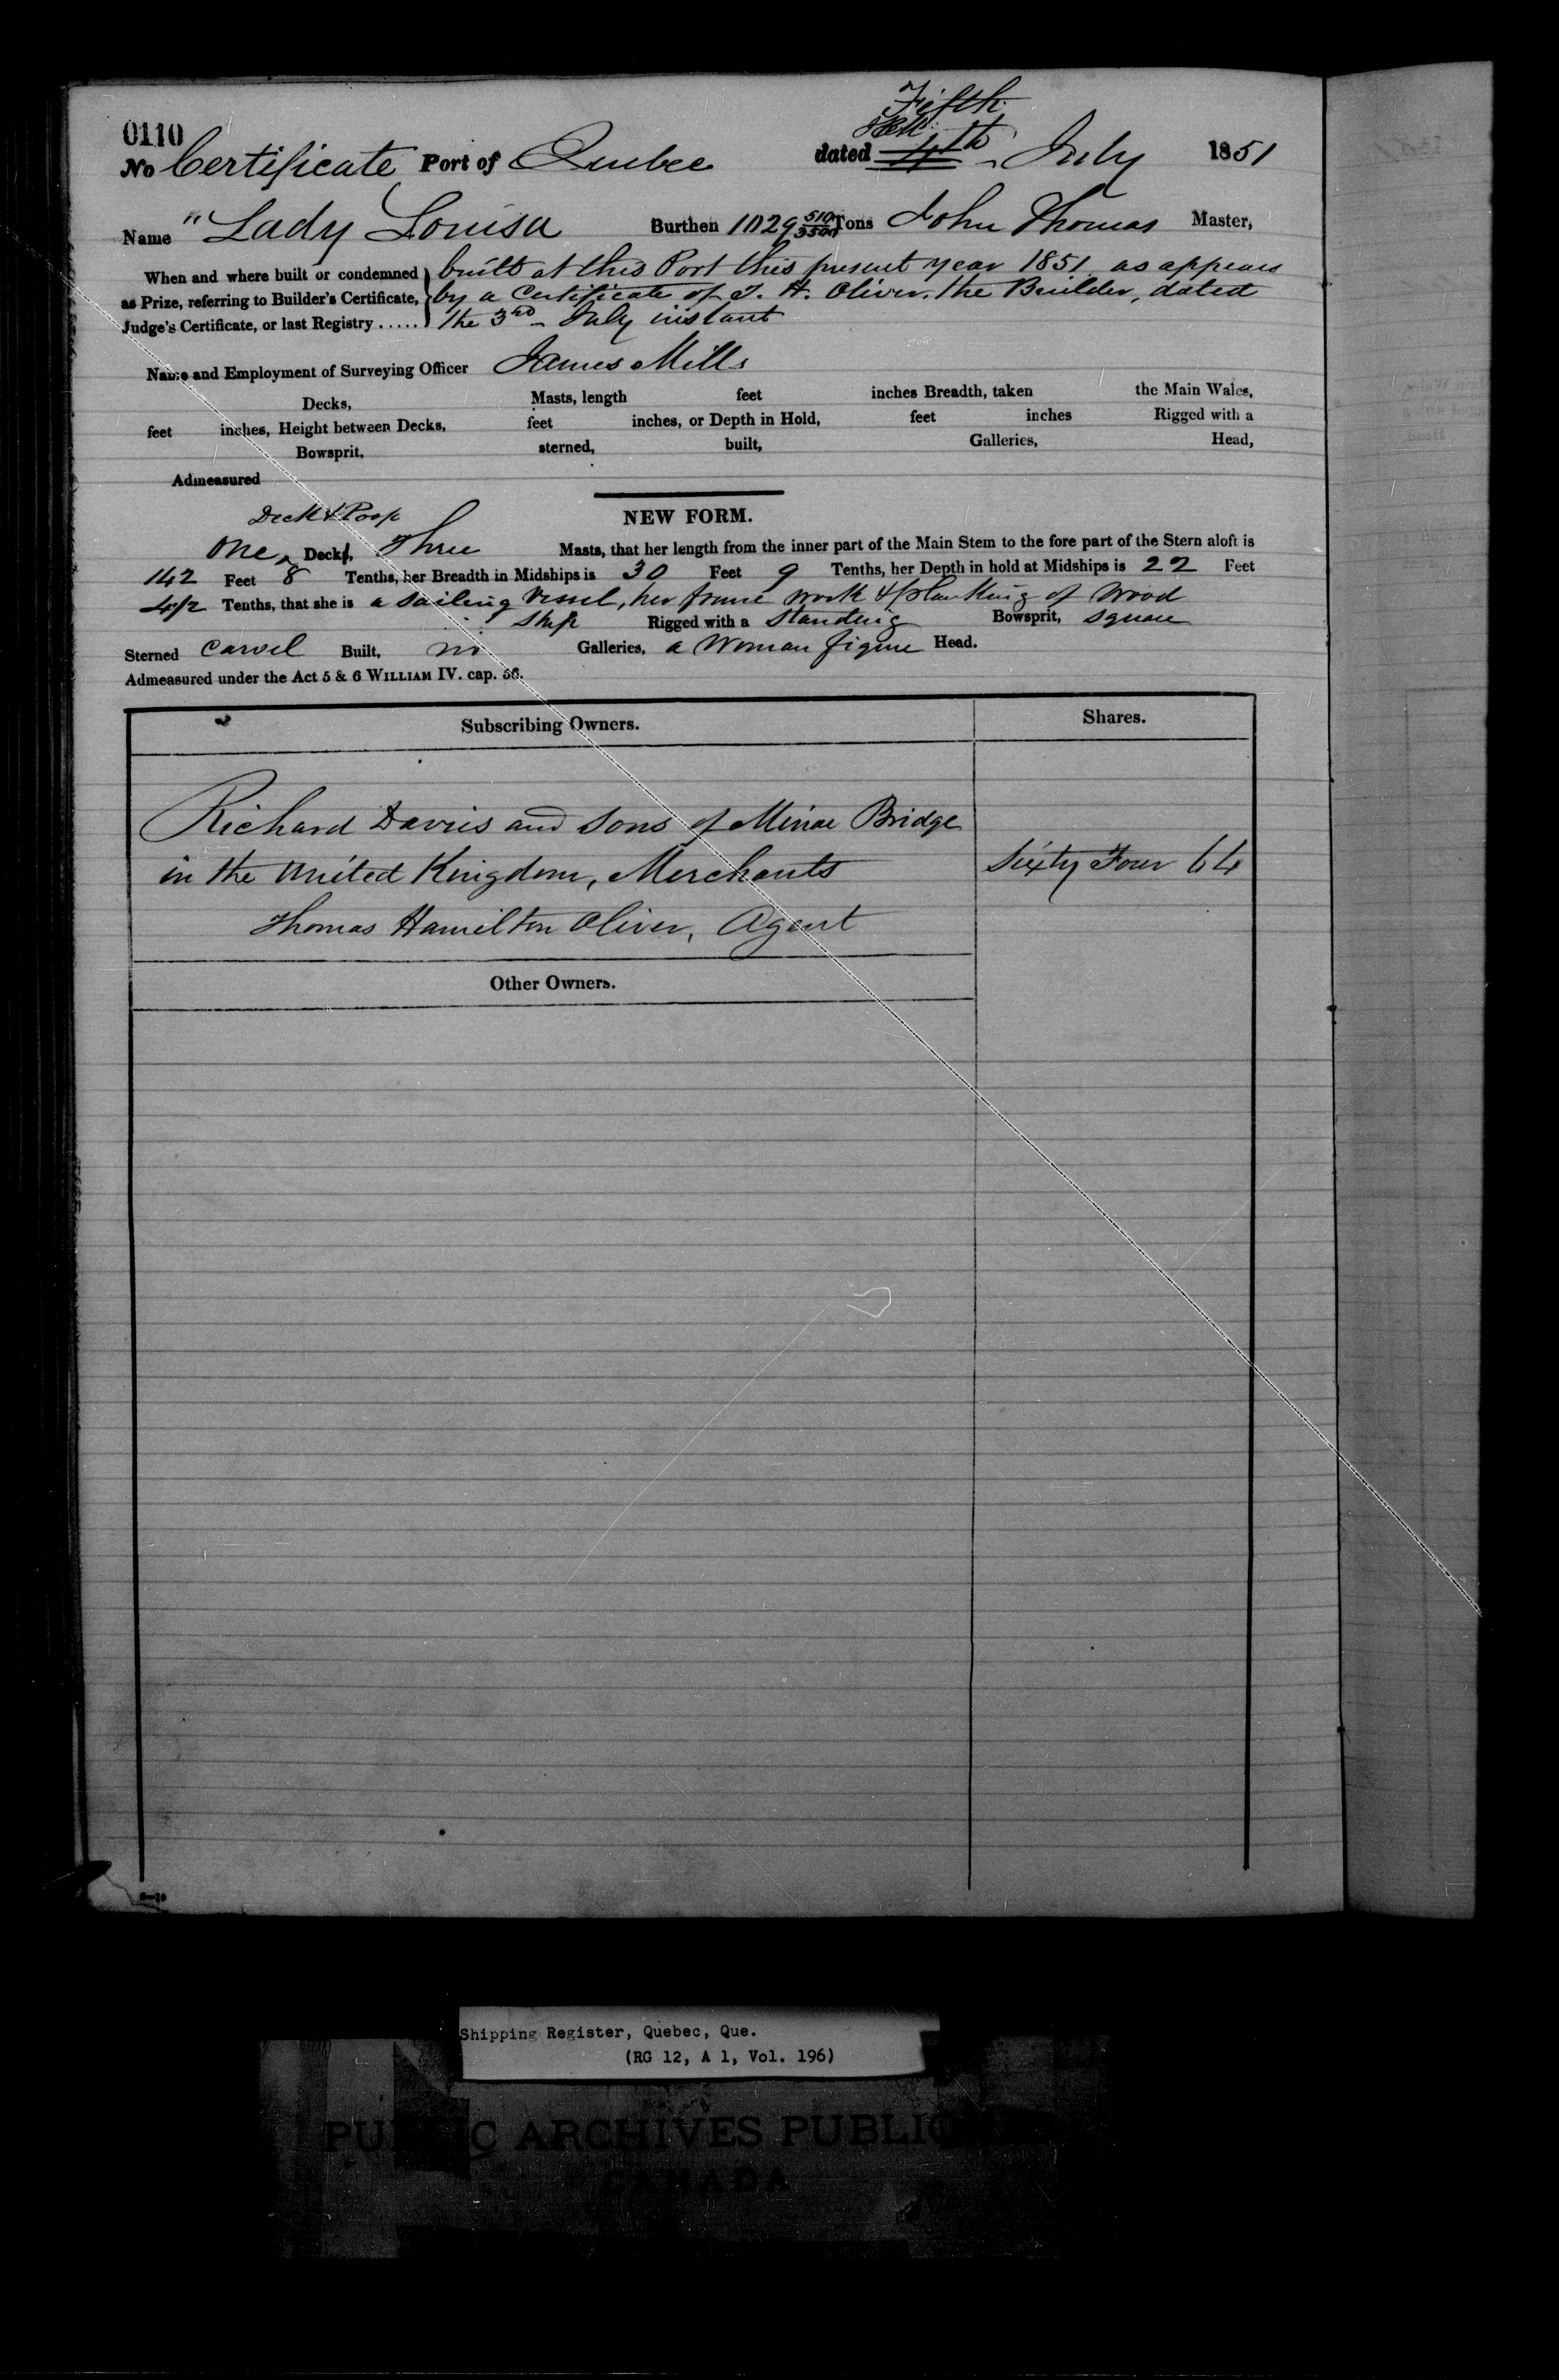 0110
Fifth
No Certificate Port of Quebec dated 4th July 1851
Name "Lady Louisa Burthen 1029 510/3500 Tons John Thomas Master,
When and where built or condemned built at this Port this present year 1851 as appears
as Prize, referring to Builder's Certificate, by a Certificate of T. H. Oliver, the Builder, dated
Judge's Certificate, or last Registry ..... the 3rd July instant
Name and Employment of Surveying Officer James Mills
Decks, Masts, length feet inches Breadth, taken the Main Wales,
feet inches, Height between Decks, feet inches, or Depth in Hold, feet inches Rigged with a
Bowsprit, sterned, built, Galleries, Head,
Admeasured
NEW FORM.
Deck & Poop
One Deck, Three Masts, that her length from the inner part of the Main Stem to the fore part of the Stern aloft is
142 Feet 8 Tenths, her Breadth in Midships is 30 Feet 9 Tenths, her Depth in hold at Midships is 22 Feet
Tenths, that she is a sailing vessel, her frame work & planking of wood
Ship Rigged with a Standing Bowsprit, square
Sterned Carvel Built, no Galleries, a Woman figure Head.
Admeasured under the Act 5 & 6 WILLIAM IV. cap. 56.
Subscribing Owners. Shares.
Richard Davies and Sons of Minae Bridge
in the United Kingdom, Merchants Sixty Four 64
Thomas Hamilton Oliver, Agent
Other Owners.
Shipping Register, Quebec, Que.
(RG 12, A 1, Vol. 196)
ARCHIVES
CANADA